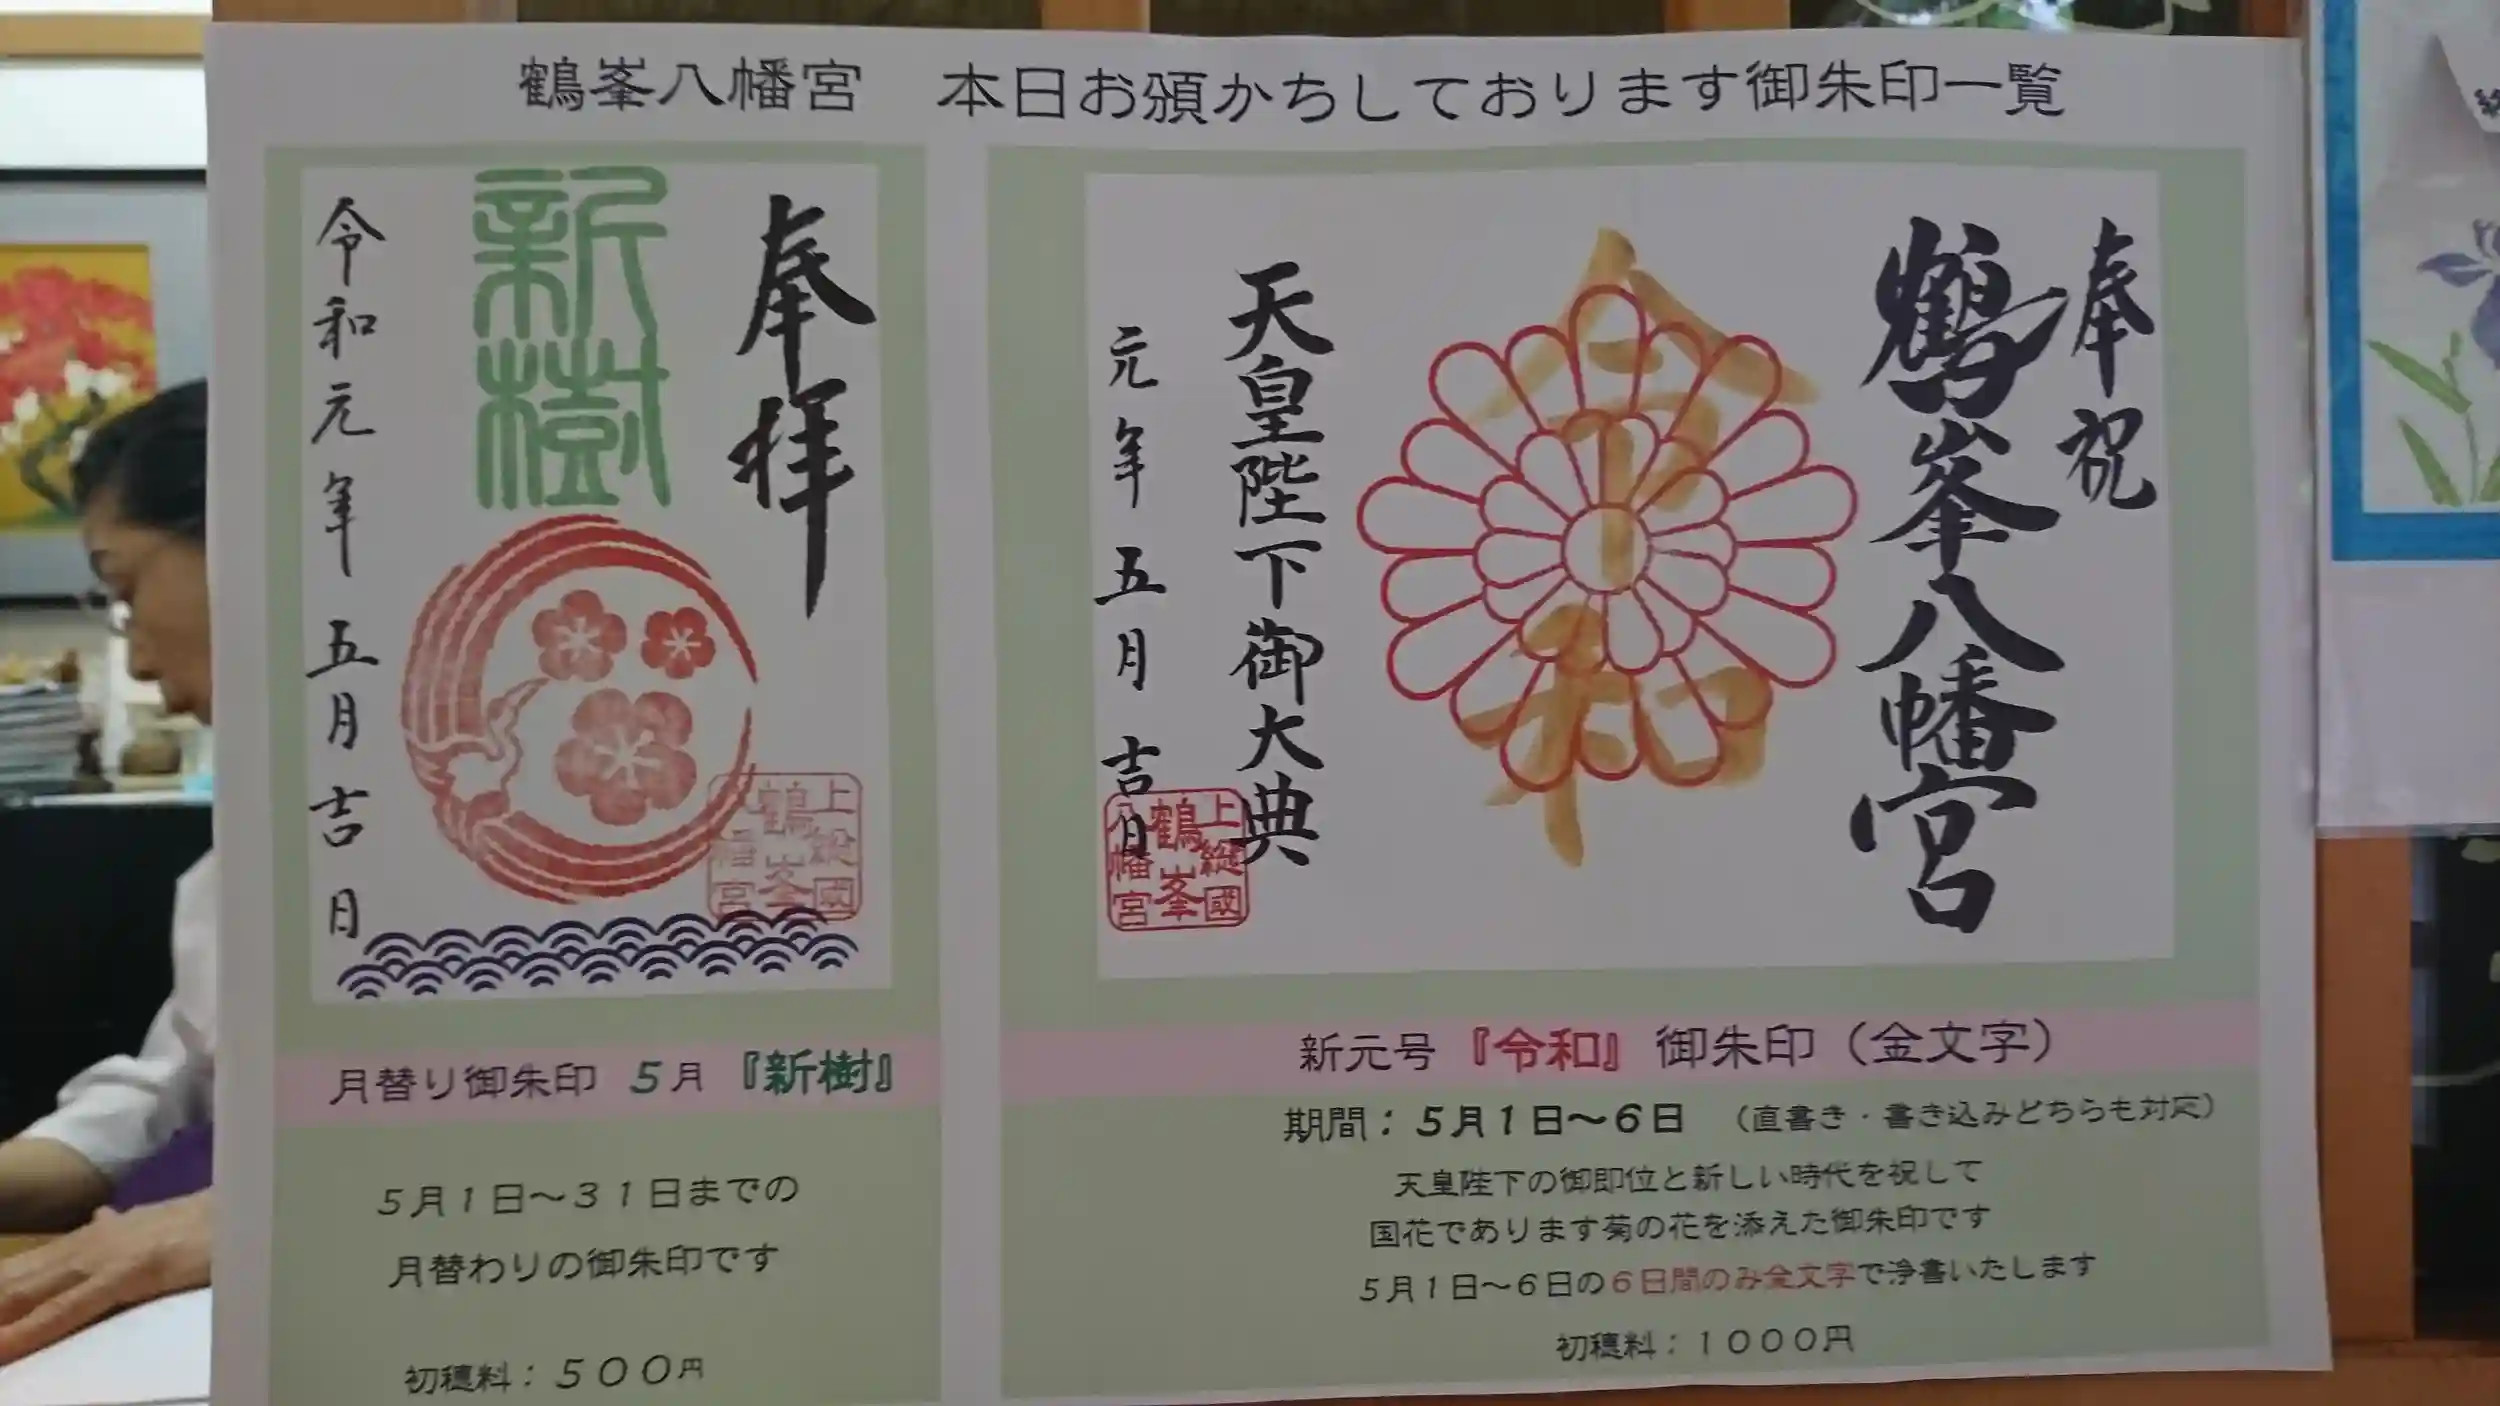 鶴峯八幡宮 本日お頒かちしております御朱印一覧
奉拝
新樹
上総國
鶴峯
八幡宮
令和元年 五月吉日
月替り御朱印 5月『新樹』
5月1日~31日までの
月替わりの御朱印です
初穂料:500円
奉祝
鶴峯八幡宮
令和
天皇陛下御大典
元年 五月 吉日
上総國
鶴峯
八幡宮
新元号『令和』御朱印(金文字)
期間:5月1日~6日 (直書き・書き込みどちらも対応)
天皇陛下の御即位と新しい時代を祝して
国花であります菊の花を添えた御朱印です
5月1日~6日の6日間のみ金文字で浄書いたします
初穂料:1000円